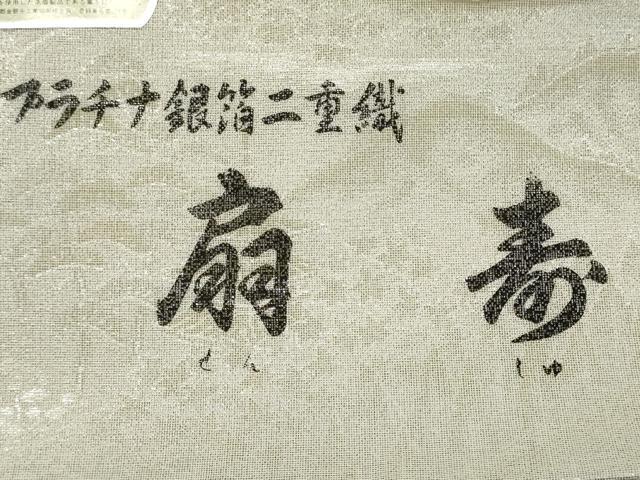 プラチナ銀箔二重織
扇 寿
せん しゅ